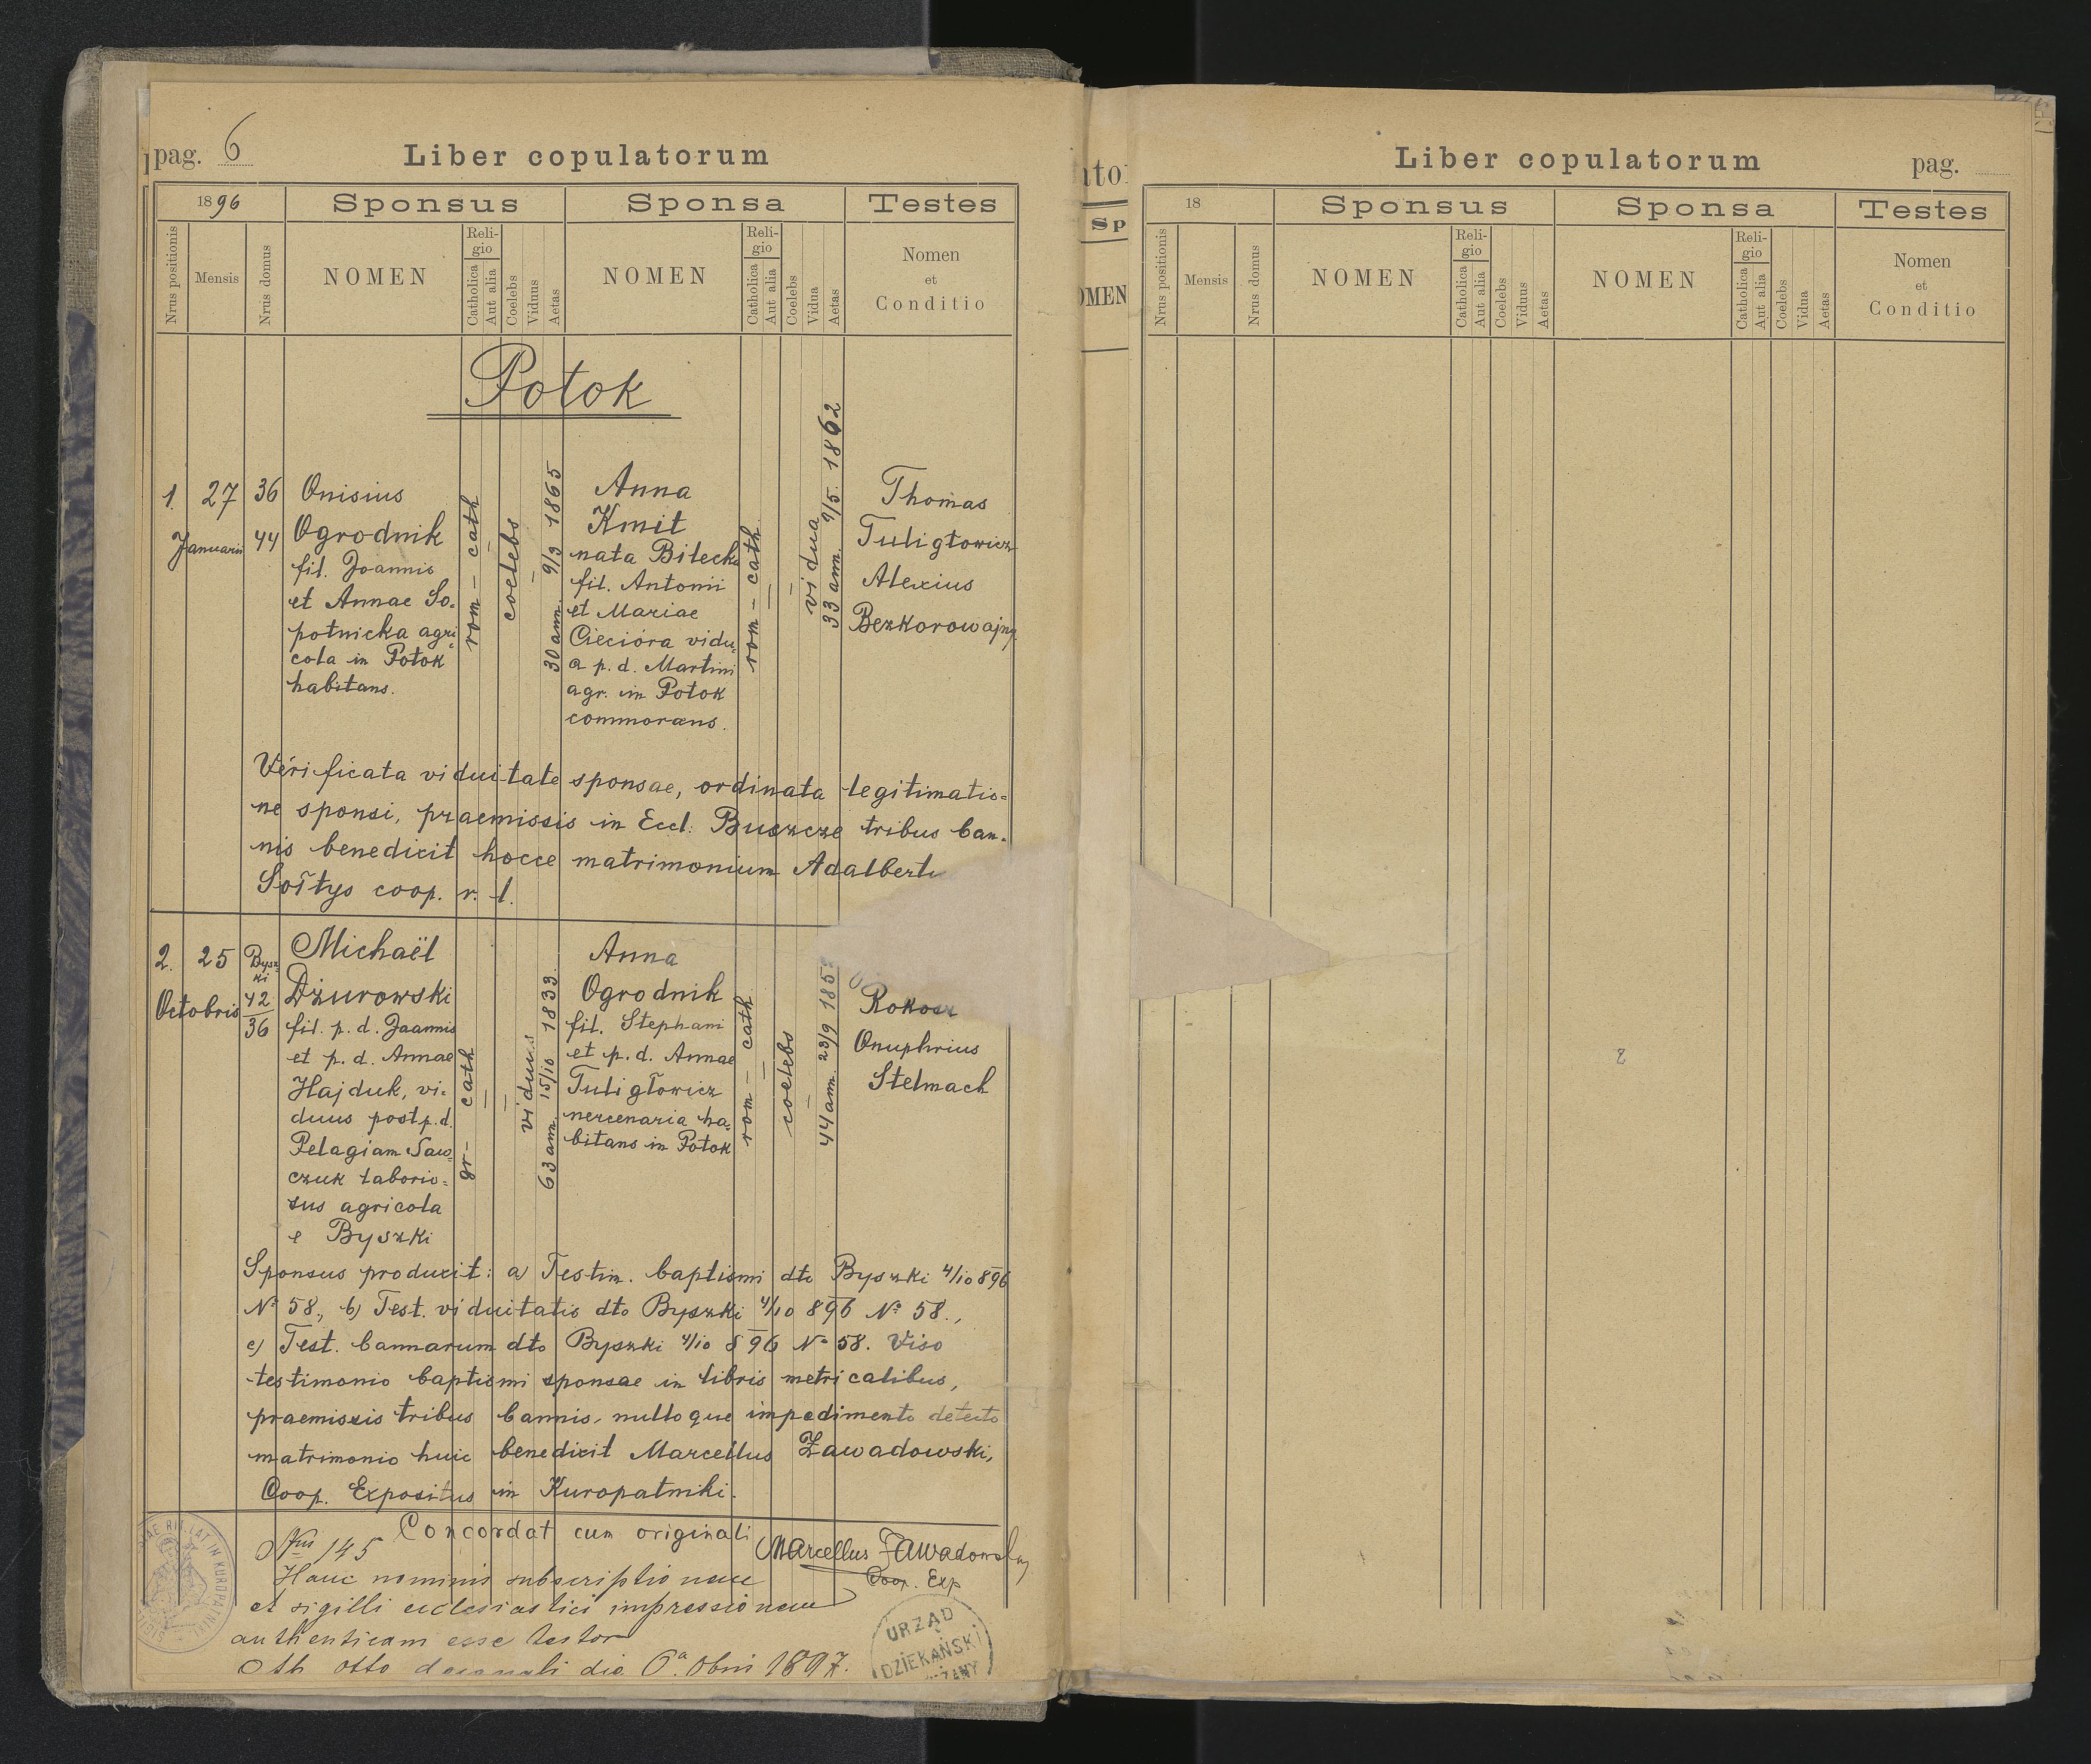 pag. 6
Liber copulatorum
1896
Sponsus
Sponsa
Testes
Nrus positionis
Mensis
Nrus domus
NOMEN
Religio
Catholica
Aut alia
Coelebs
Viduus
Aetas
NOMEN
Religio
Catholica
Aut alia
Coelebs
Vidua
Aetas
Nomen
et
Conditio
Potok
1.
27
Januarii
36
44
Onisius
Ogrodnik
fil. Joannis
et Annae So=
potnicka agri=
cola in Potok
habitans.
rom - cath
coelebs
30 ann. 9/9 1865
Anna
Kmit
nata Bilecka
fil. Antonii
et Mariae
Cieciora vidu=
a p. d. Martini
agr. in Potok
commorans.
rom - cath.
vidua
33 ann. 9/5. 1862
Thomas
Tuligłowicz
Alexius
Bezkorowajny
Verificata viduitate sponsae, ordinata legitimatio=
ne sponsi, praemissis in Eccl: Buszcze tribus ban=
nis benedixit hocce matrimonium Adalbertus
Sołtys coop. r. l.
2.
25
Octobris
Bysz
ki
42
36
Michaël
Dżurowski
fil. p. d. Joannis
et p. d. Annae
Hajduk, vi=
duus post p. d.
Pelagiam Saw=
czuk laborio=
sus agricola
e Byszki
gr - cath
viduus
63 ann. 15/10 1833.
Anna
Ogrodnik
fil. Stephani
et p. d. Annae
Tuligłowicz
mercenaria ha=
bitans in Potok
rom - cath
coelebs
44 ann. 23/9 185
Rokosz
Onuphrius
Stelmach
Sponsus produxit: a) Testim. baptismi dto Byszki 4/10 896
No 58., b) Test. viduitatis dto Byszki 4/10 896 No 58.,
c) Test. bannarum dto Byszki 4/10 896 No 58. Viso
testimonio baptismi sponsae in libris metricalibus,
praemissis tribus bannis, nulloque impedimento detecto
matrimonio huic benedixit Marcellus Zawadowski,
Coop. Expositus in Kuropatniki.
Concordat cum originali
Marcellus Zawadowski
Coop. Exp
Nrus 145
Hanc nominis subscriptionem
et sigilli ecclesiastici impressionem
authenticam esse testor
die 6a 1897.
RIT. LAT. IN KUROPATNIKI
URZĄD
DZIEKAŃSKI
Liber copulatorum
pag.
18
Sponsus
Sponsa
Testes
Nrus positionis
Mensis
Nrus domus
NOMEN
Religio
Catholica
Aut alia
Coelebs
Viduus
Aetas
NOMEN
Religio
Catholica
Aut alia
Coelebs
Vidua
Aetas
Nomen
et
Conditio